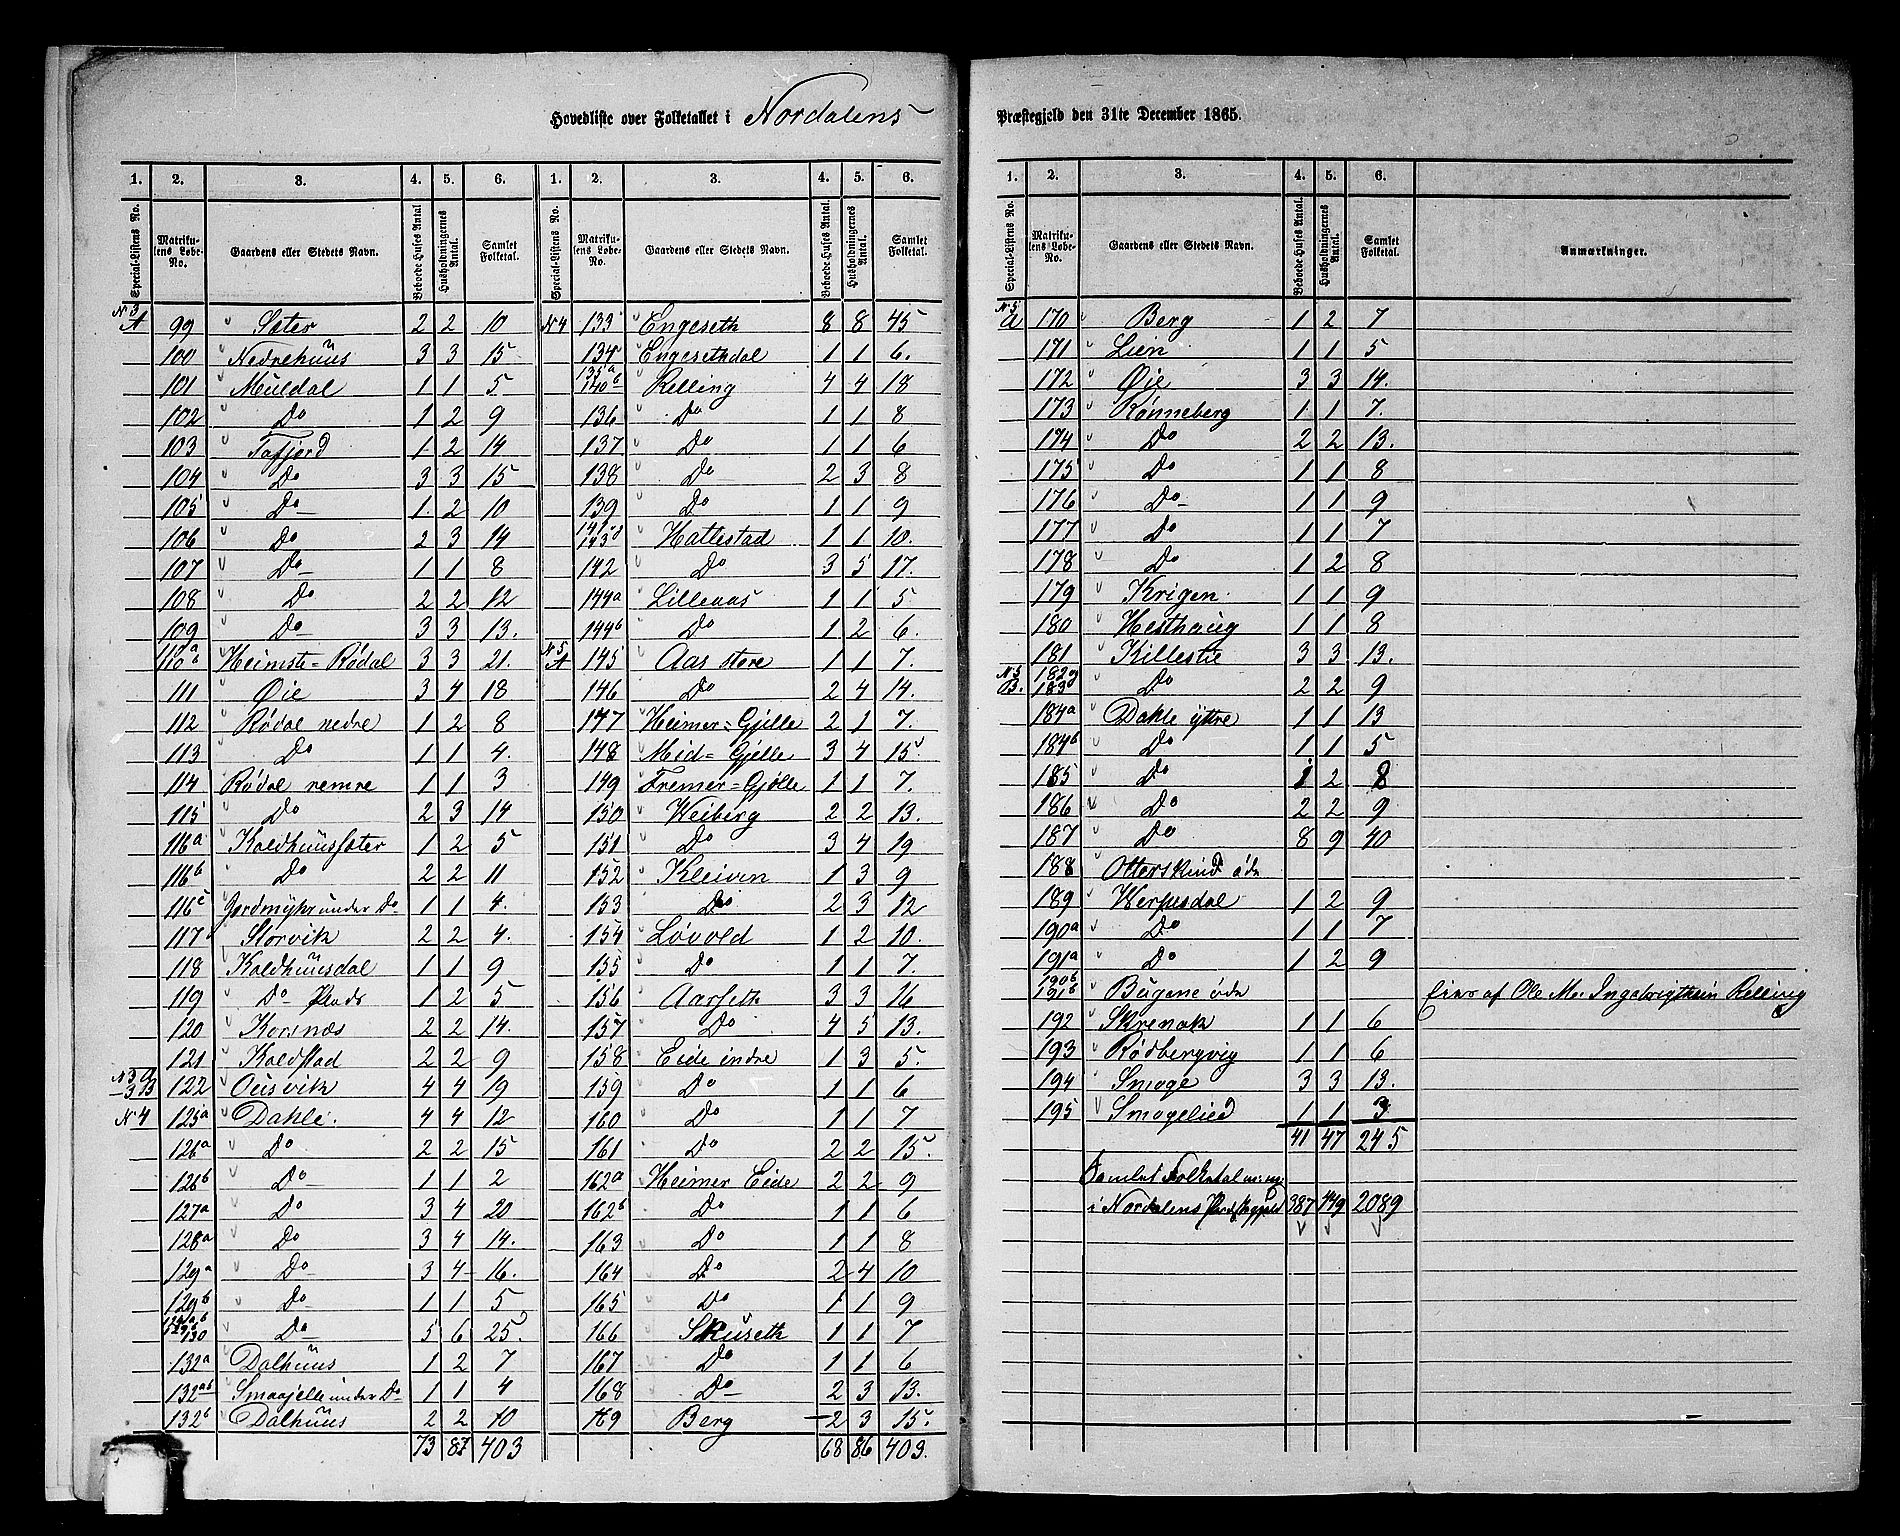 Hovedliste over Folketallet i Nordalens
1. 2. 3. 4. 5. 6. 1. 2. 3. 4. 5. 6.
Special-Listens No. Matrikulens Løbe-No. Gaardens eller Stedets Navn. Beboede Huses Antal. Husholdningernes Antal. Samlet Folketal. Special-Listens No. Matrikulens Løbe-No. Gaardens eller Stedets Navn. Beboede Huses Antal. Husholdningernes Antal. Samlet Folketal.
N 3 A 99 Sæter 2 2 10 N 4 133 Engeseth 8 8 45
100 Nedrehuus 3 3 15 134 Engesethdal 1 1 6.
101 Muldal 1 1 5 135a 140b Relling 4 4 18
102 Do 1 2 9 136 Do 1 1 8
103 Tafjord 1 2 14 137 Do 1 1 6
104 Do 3 3 15 138 Do 2 3 8
105 Do 1 2 10 139 Do 1 1 9
106 Do 2 3 14 141 og 143 Hattestad 1 1 10.
107 Do 1 1 8 142 Do 3 5 17.
108 Do 2 2 12 144a Lilleaas 1 1 5
109 Do 3 3 13. 144b Do 1 2 6.
110a 110b Heimste=Rødal 3 3 21. N 5 A 145 Aas store 1 1 7.
111 Øie 3 4 18 146 Do 2 4 14.
112 Rødal nedre 1 2 8 147 Heimer=Gjelle 2 1 7.
113 Do 1 1 4. 148 Mid=Gjelle 3 4 15
114 Rødal remre 1 1 3 149 Fremer=Gjølle 1 1 7.
115 Do 2 3 14 150 Weiberg 2 2 13.
116a Koldhuussæter 1 2 5 151 Do 3 4 19
116b Do 2 2 11 152 Kleiven 1 3 9
116c Jordmyhr under Do 1 1 4. 153 Do 2 3 12
117 Storvik 2 2 4. 154 Løvold 1 2 10.
118 Koldhuusdal 1 1 9 155 Do 1 1 7.
119 Do Plads 1 2 5 156 Aarseth 3 3 16
120 Korsnæs 2 2 14. 157 Do 4 5 13.
121 Koldstad 2 2 9 158 Eide indre 1 3 5.
N 3 og 3 B 122 Ousvik 4 4 19 159 Do 1 1 6
N 4 125a Dahle. 4 4 12 160 Do 1 1 7
126a Do 2 2 15 161 Do 2 2 15.
126b Do 1 1 2 162a Heimer Eide 2 2 9
127a Do 3 4 20 162b Do 1 1 6
128a Do 3 4 14. 163 Do 1 1 8
129a Do 3 4 16. 164 Do 2 4 10
129b Do 1 1 5 165 Do 1 1 9
130 Do 5 6 25 166 Skuseth 1 1 7
132a Dalhuus 1 2 7 167 Do 1 1 6
132ab Smaajelle under Do 1 1 4 168 Do 2 3 13.
132b Dalhuus 2 2 10 169 Berg 2 3 15.
73 87 403 68 86 403.
Præstegjeld den 31te December 1865.
1. 2. 3. 4. 5. 6.
Special-Listens No. Matrikulens Løbe-No. Gaardens eller Stedets Navn. Beboede Huses Antal. Husholdningernes Antal. Samlet Folketal. Anmærkninger.
N 5 a 170 Berg 1 2 7
171 Lien 1 1 5
172 Øie 3 3 14.
173 Rønneberg 1 1 7.
174 Do 2 2 13.
175 Do 1 1 8
176 Do 1 1 9
177 Do 1 1 7
178 Do 1 2 8
179 Krigen. 1 1 9
180 Hesthaug 1 1 8
181 Killestie 3 3 13.
N 5 B. 182 og 183 Do 2 2 9
184a Dahle ÿttre 1 1 13
184b Do 1 1 5
185 Do 1 2 8
186 Do 2 2 9
187 Do 8 9 40
188 Otterskind øde
189 Werpesdal 1 2 9
190a Do 1 1 7
191a Do 1 2 9
190b 191b Bugene øde Eies af Ole M. Ingebrigtsen Relling
192 Skrenak 1 1 6
193 Rødbergvig 1 1 6
194 Smoge 3 3 13.
195 Smogelied 1 1 3
41 47 245
Samlet Folketal
i Nordalens Præstegjeld 387 449 2089